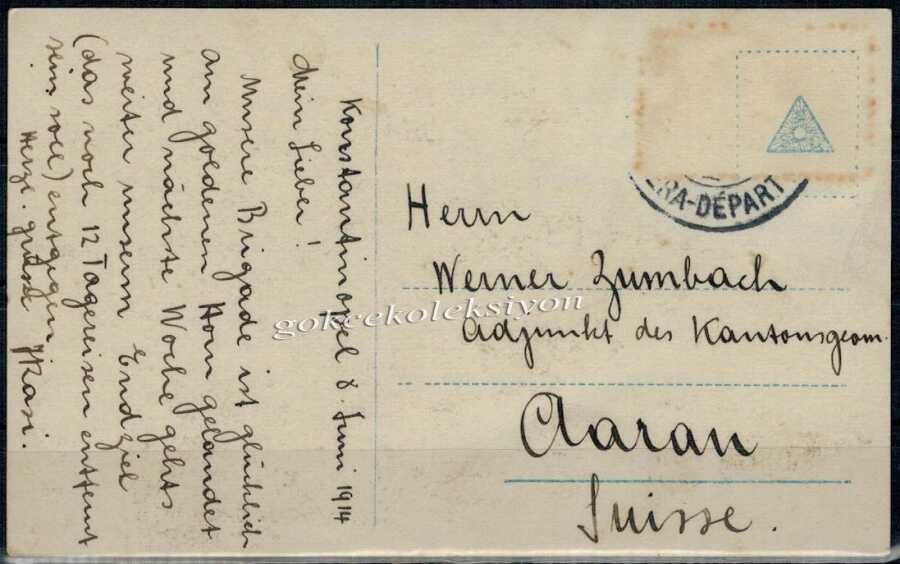 Konstantinopel 8. Juni 1914
Mein Lieber!
Unsere Brigade ist glücklich
am goldenen Horn gelandet
und nächste Woche gehts
weiter unserm Endziel
(das noch 12 Tagereisen entfernt
sein soll) entgegen
Herzl. Grüsse
RA-DÉPART
Herrn
Werner Zumbach
Adjunkt des Kantonsgeom.
Aarau
Suisse.
gokcekoleksiyon